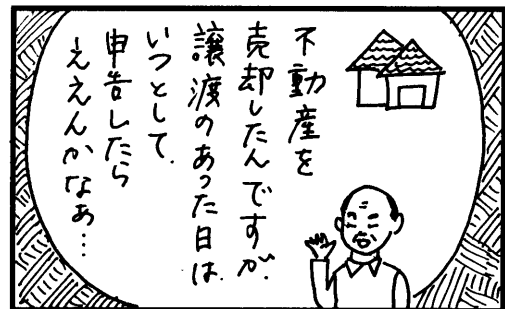 不動産を
売却したんですが、
譲渡のあった日は、
いつとして、
申告したら
ええんかなぁ…